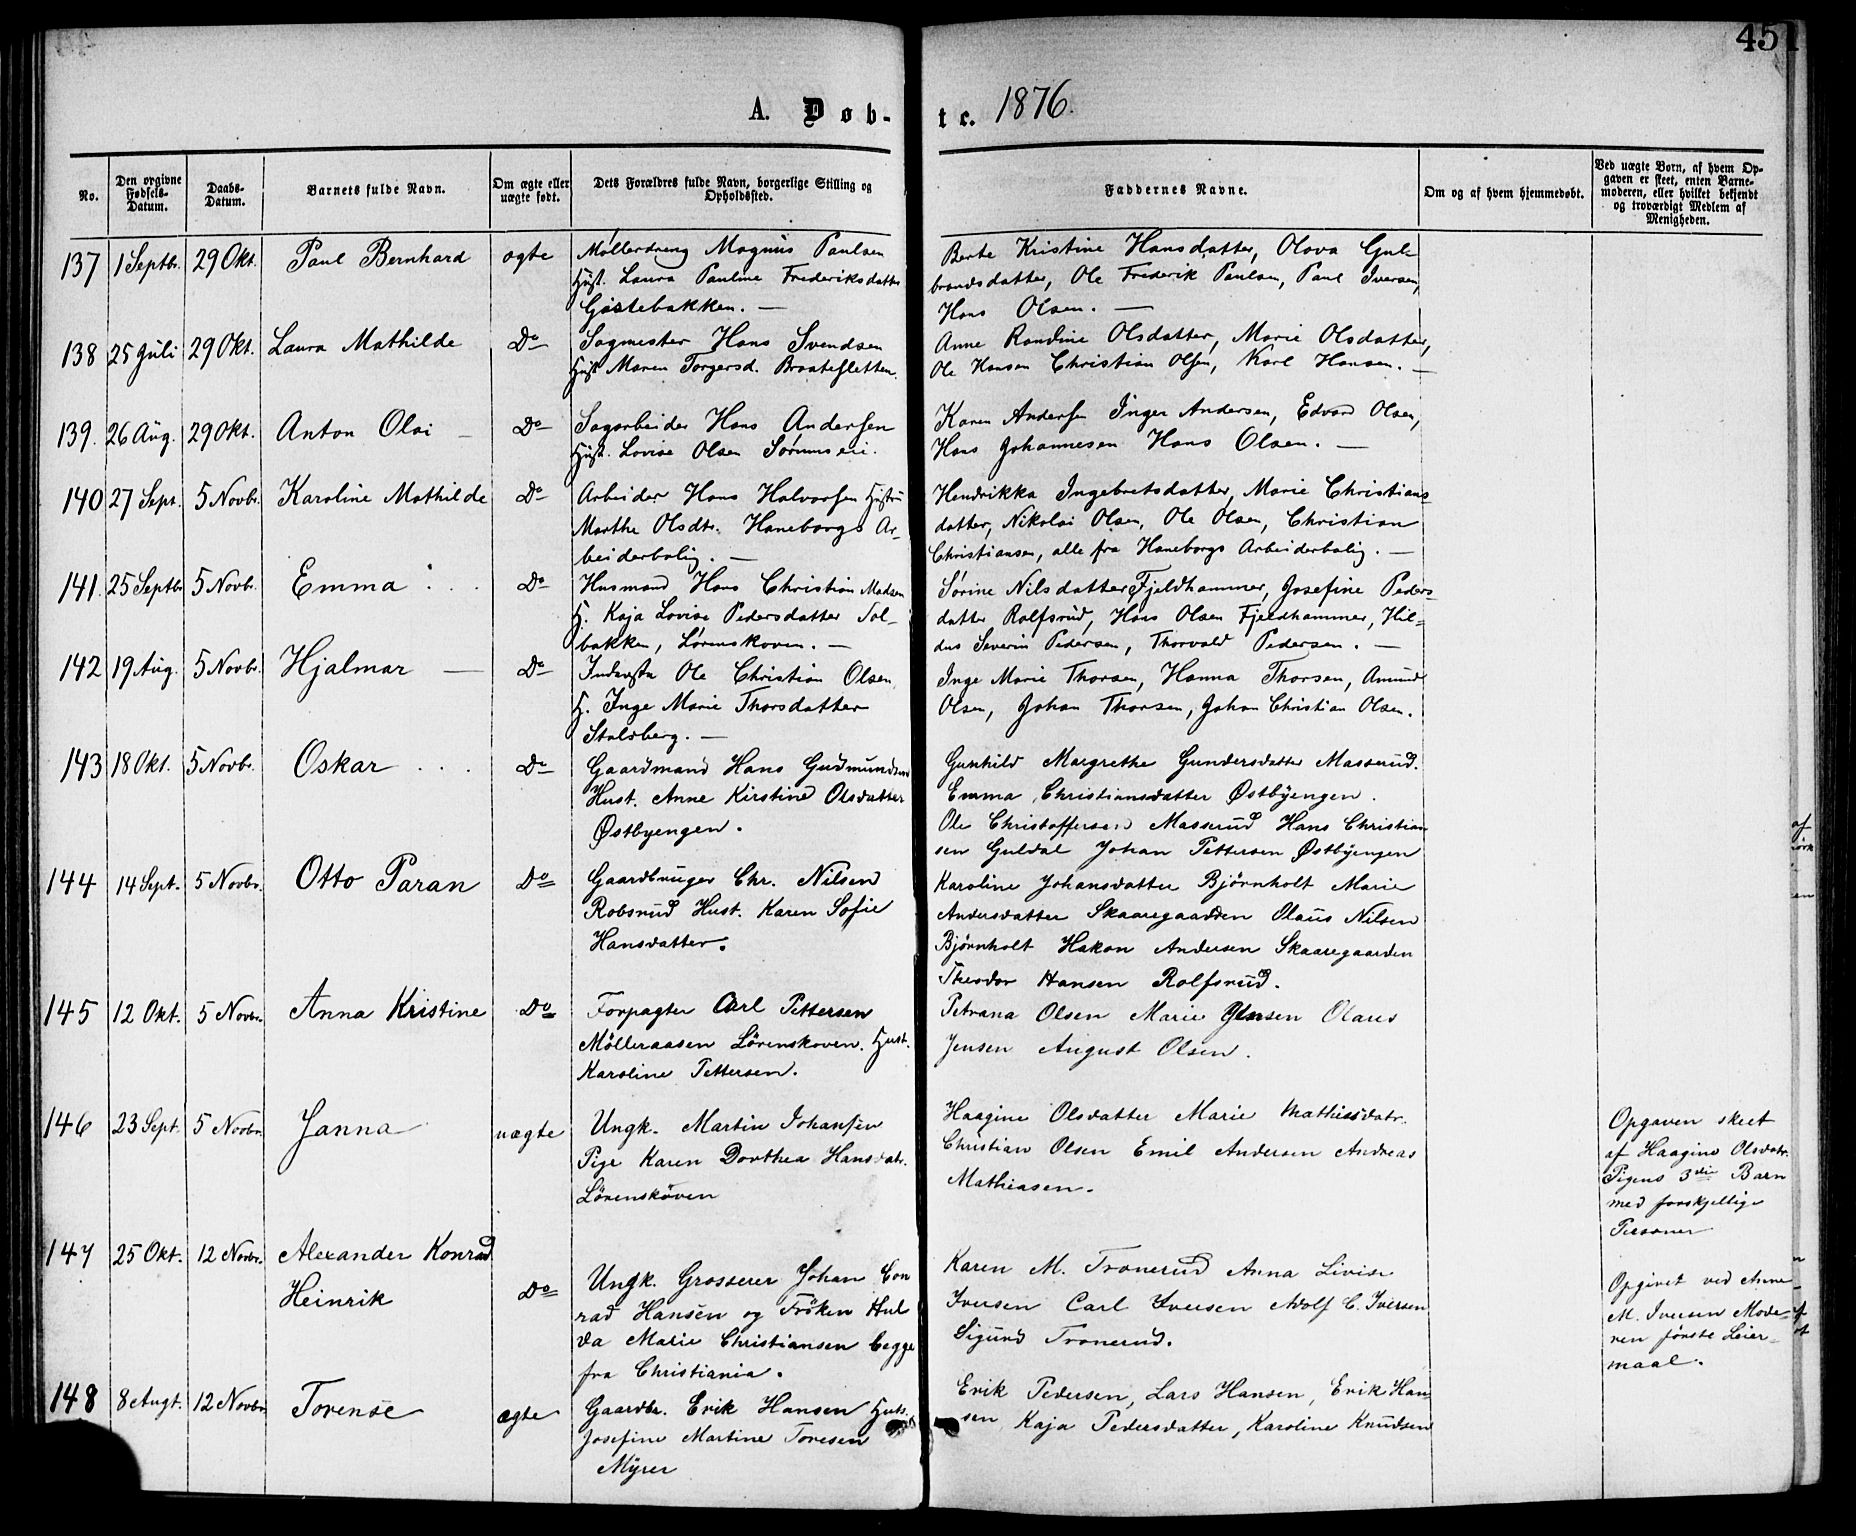 45
A. Døb-
te. 1876.
No.
Den opgivne Fødsels-Datum.
Daabs-Datum.
Barnets fulde Navn.
Om ægte eller uægte født.
Dets Forældres fulde Navn, borgerlige Stilling og Opholdssted.
Faddernes Navne.
Om og af hvem hjemmedøbt.
Ved uægte Børn, af hvem Opgaven er skeet, enten Barnemoderen, eller hvilket bekjendt og troværdigt Medlem af Menigheden.
137 1 Septbr. 29 Okt. Paul Bernhard ægte
Møllerdreng Magnus Paulsen
Hust. Laura Pauline Frederiksdatter
Gjøstebakken. —
Berte Kristine Hansdatter, Olava Gul-
brandsdatter, Ole Frederik Paulsen, Paul Iversen,
Hans Olsen. —
138 25 Juli 29 Okt. Laura Mathilde Do
Sagmester Hans Svendsen
Hust Maren Torgersd. Braatesletten.
Anne Randine Olsdatter, Marie Olsdatter,
Ole Hansen Christian Olsen, Karl Hansen. —
139. 26 Aug. 29 Okt. Anton Olai — Do
Sagarbeider Hans Andersen
Hust. Lovise Olsen Sørumseie.
Karen Andersen Inger Andersen, Edvard Olsen,
Hans Johannesen Hans Olsen. —
140 27 Sept. 5 Novbr. Karoline Mathilde Do
Arbeider Hans Halvorsen Hustru
Marthe Olsdtr. Haneborgs Ar-
beiderbolig. —
Hendrikka Ingebretsdatter, Marie Christians-
datter, Nikolai Olsen, Ole Olsen, Christian
Christiansen, alle fra Haneborgs Arbeiderbolig. —
141. 25 Septbr 5 Novbr. Emma Do
Husmand Hans Christian Madsen
H. Kaja Lovise Pedersdatter Sol-
bakken, Lørenskoven. —
Sørine Nilsdatter Fjeldhammer, Josefine Peders-
datter Rolfsrud, Hans Olsen Fjeldhammer, Hil-
dus Severin Pedersen, Thorvald Pedersen. —
142 19 Aug. 5 Novbr. Hjalmar — Do
Inderste Ole Christian Olsen,
H. Inge Marie Thorsdatter
Stalsberg. —
Inge Marie Thorsen, Hanna Thorsen, Amund
Olsen, Johan Thorsen, Johan Christian Olsen.
143 18 Okt. 5 Novbr. Oskar Do
Gaardmand Hans Gudmundsen
Hust. Anne Kirstine Olsdatter
Østbyengen.
Gunhild Margrethe Gundersdatter Masserud.
Emma Christiansdatter Østbyengen.
Ole Christoffersen Masserud Hans Christian
sen Guldal Johan Pettersen Østbyengen
144 14 Sept. 5 Novbr. Otto Paran Do
Gaardbruger Chr. Nilsen
Robsrud Hust. Karen Sofie
Hansdatter.
Karoline Johansdatter Bjørnholt Marie
Andersdatter Skaaregaarden Olaus Nilsen
Bjørnholt Hakon Andersen Skaaregaarden
Theodor Hansen Rolfsrud.
145 12 Okt. 5 Novbr. Anna Kristine Do
Forpagter Carl Pettersen
Mølleraasen Lørenskoven. Hust.
Karoline Pettersen.
Petrana Olsen Marie Jensen Olaus
Jensen August Olsen.
146 23 Sept. 5 Novbr. Janna uægte
Ungk. Martin Johansen
Pige Karen Dorthea Hansdatr.
Lørenskoven
Haagine Olsdatter Marie Mathiasdatr.
Christian Olsen Emil Andersen Andreas
Mathiasen.
Opgaven skeet
af Haagine Olsdatr.
Pigens 3die Barn
med forskjellige
Personer
147 25 Okt. 12 Novbr. Alexander Konrad
Heinrik Do
Ungk. Grosserer Johan Con
rad Hansen og Frøken Hul
da Marie Christiansen begge
fra Christiania.
Karen M. Tronerud Anna Livise
Iversen Carl Iversen Adolf C. Iversen
Sigurd Tronerud.
Opgivet ved Anne
M. Iversen Mode-
ren første Leier-
maal.
148 8 Augt. 12 Novbr. Torense ægte
Gaardbr. Erik Hansen Hust.
Josefine Martine Toresen
Myrer
Erik Pedersen, Lars Hansen, Erik Han
sen, Kaja Pedersdatter, Karoline Knudsen